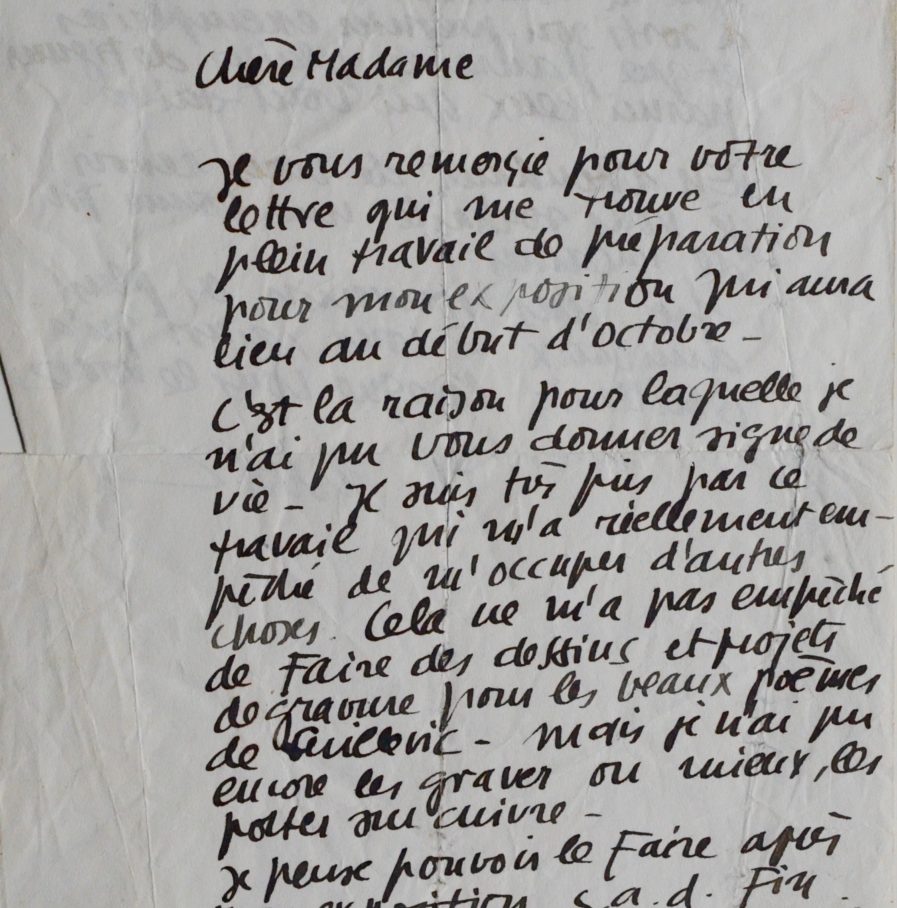 Chère Madame
Je vous remercie pour votre
lettre qui me trouve en
plein travail de préparation
pour mon exposition qui aura
lieu au début d'octobre -
C'est la raison pour laquelle je
n'ai pu vous donner signe de
vie - Je suis très pris par ce
travail qui m'a réellement em-
pêché de m'occuper d'autres
choses. Cela ne m'a pas empêché
de Faire des dessins et projets
de gravure pour les beaux poèmes
de Guillevic - mais je n'ai pu
encore les graver ou mieux, les
porter sur cuivre -
Je pense pouvoir le Faire après
exposition c.a.d. Fin